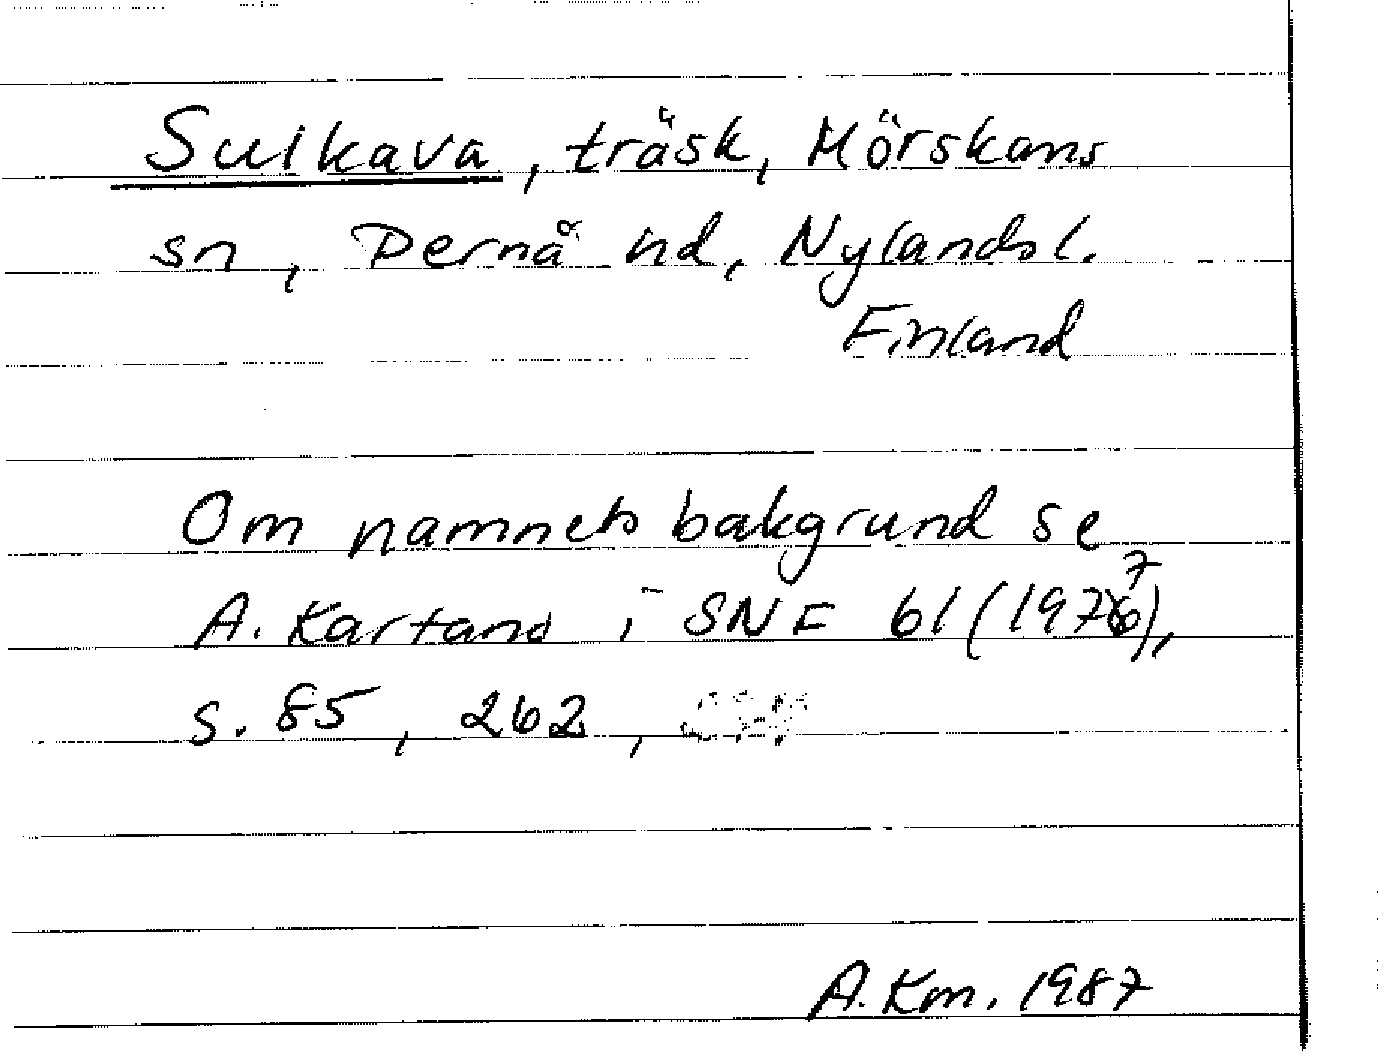 Sulkava, träsk, Mörskoms
sn, Pernå hd, Nylands l.
Finland
Om namnets bakgrund se
A. Karsten i SNF 61 (1977),
s. 85, 262,
A.Km. 1987